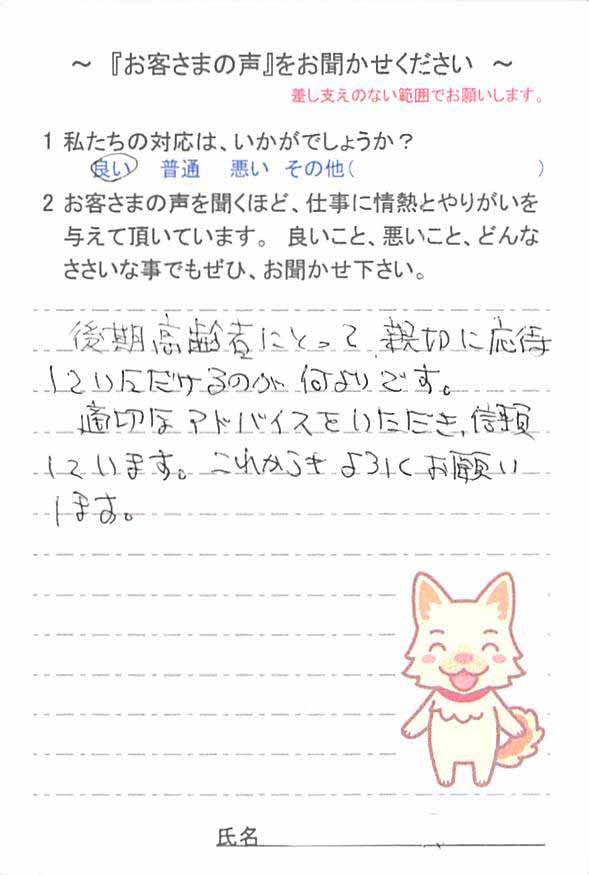 ～ 『お客さまの声』をお聞かせください ～
差し支えのない範囲でお願いします。
1 私たちの対応は、いかがでしょうか？
良い 普通 悪い その他( )
2 お客さまの声を聞くほど、仕事に情熱とやりがいを
与えて頂いています。 良いこと、悪いこと、どんな
ささいな事でもぜひ、お聞かせ下さい。
後期高齢者にとって、親切に応待
していただけるのが何よりです。
適切なアドバイスをいただき、信頼
しています。これからもよろしくお願い
します。
氏名